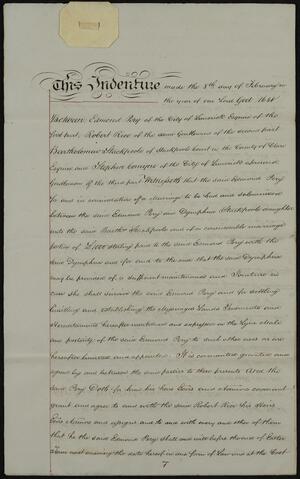 This Indenture made the 8th day of February in
the year of our Lord God 16
Between Edmond Pery of the City of Limerick Esquire of the
first part, Robert Rice of the same Gentleman of the second part
Bartholomew Stackpoole of Stackpoole Court in the County of Clare
Esquire and Stephen Comyn of the City of Limerick aforesaid
Gentleman of the third part Witnesseth that the said Edmond Pery
for and in consideration of a marriage to be had and solemnized
between the said Edmond Pery and Dymphna Stackpoole daughter
unto the said Stackpoole and of a considerable marriage
portion of sterling paid to the said Edmond Pery with the
said Dymphna and for and to the end that the said Dymphna
may be provided of a sufficient maintenance and Jointure in
case she shall survive the said Edmond Pery and for settling
and establishing the Messuages Lands Tenements and
Hereditaments hereafter mentioned and expressed on the
of the said Edmond Pery to such other uses as are
hereafter limited and appointed. It is covenanted granted and
agreed by and between the said parties to these presents And the
said Pery Doth for him his heirs Exors and Admors covenant
grant and agree to and with the said Robert Rice his Heirs
Exors Admors and assigns and to and with every and other of them
that he the said Edmond Pery shall and will before the end of Easter
Term next ensuing the date hereof in due form of Law at the Cost
7